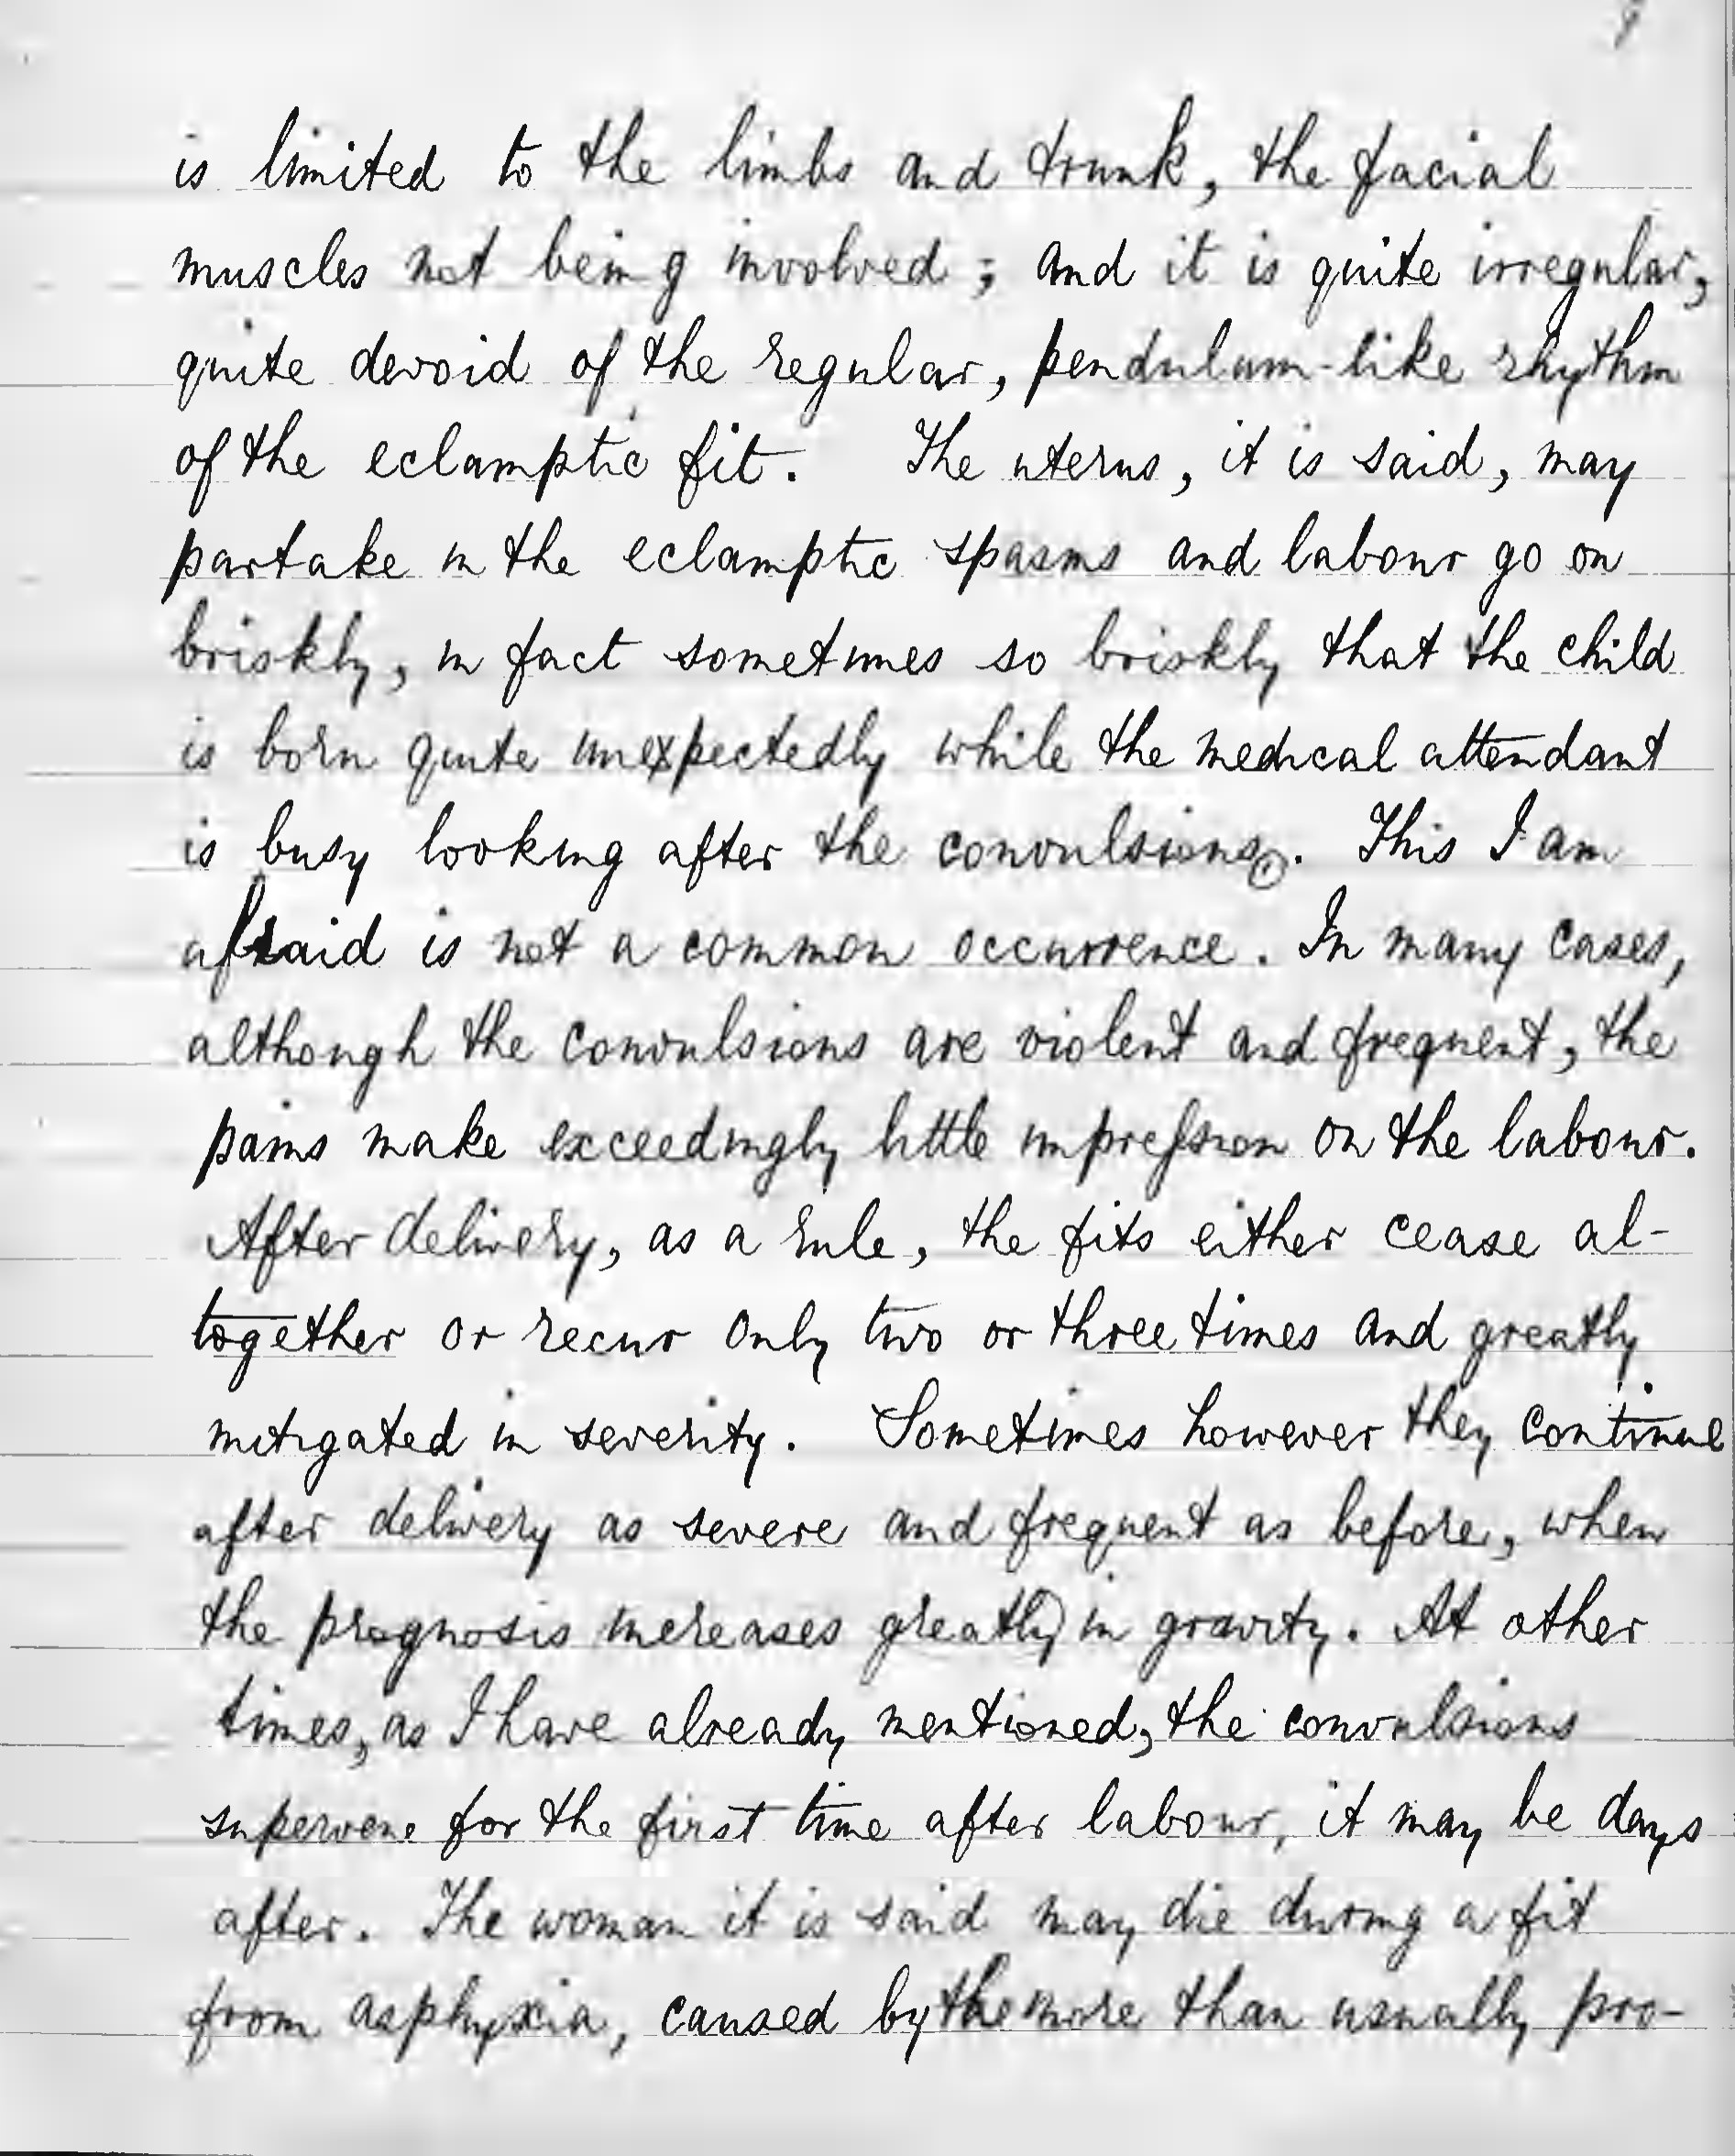 is limited to the limbs and trunk, the facial
muscles not being involved; and it is quite irregular,
quite devoid of the regular, pendulum-like rhythm
of the eclamptic fit. The uterus, it is said, may
partake in the eclamptic spasms and labour go on
briskly, in fact sometimes so briskly that the child
is born quite unexpectedly while the medical attendant
is busy looking after the convulsions. This I am
afraid is not a common occurrence. In many cases,
although the convulsions are violent and frequent, the
pains make exceedingly little impression on the labour.
After delivery, as a rule, the fits either cease al-
together or recur only two or three times and greatly
mitigated in severity. Sometimes however they continue
after delivery as severe and frequent as before, when
the prognosis increases greatly in gravity. At other
times, as I have already mentioned, the convulsions
supervene for the first time after labour, it may be days
after. The woman it is said may die during a fit
from asphyxia, caused by the more than usually pro-